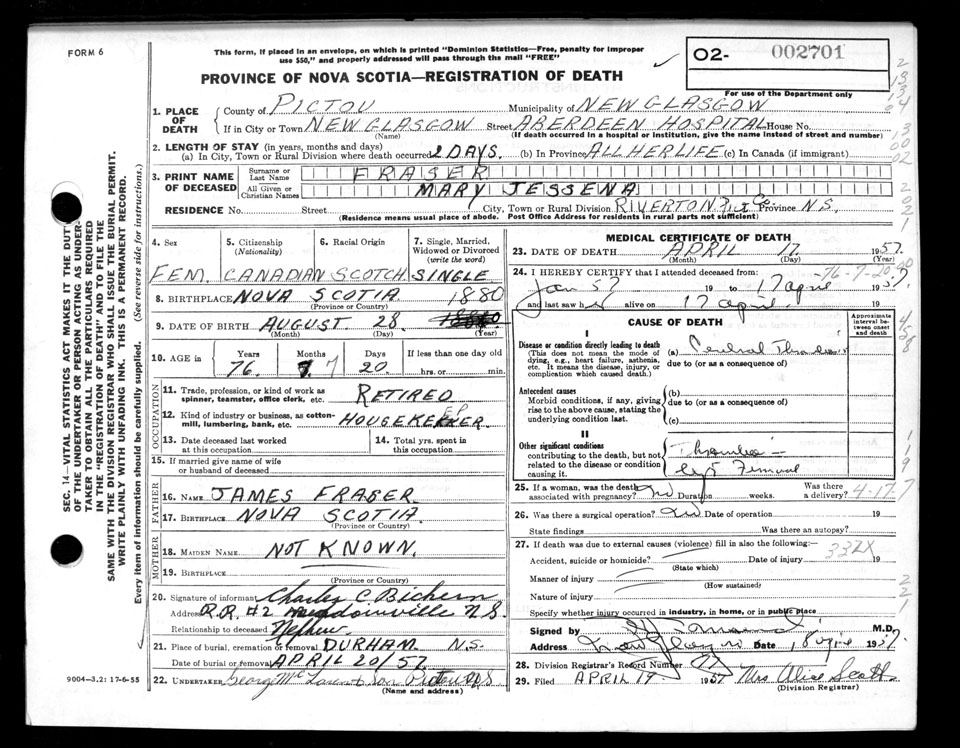 FORM 6
This form, if placed in an envelope, on which is printed "Dominion Statistics—Free, penalty for improper
use $50," and properly addressed will pass through the mail "FREE"
PROVINCE OF NOVA SCOTIA—REGISTRATION OF DEATH
02- 002701
For use of the Department only
1. PLACE OF DEATH
County of PICTOU Municipality of NEW GLASGOW
If in City or Town NEW GLASGOW Street ABERDEEN HOSPITAL House No.
(Name) (If death occurred in a hospital or institution, give the name instead of street and number)
2. LENGTH OF STAY (in years, months and days)
(a) In City, Town or Rural Division where death occurred 2 DAYS. (b) In Province ALL HER LIFE (c) In Canada (if immigrant)
3. PRINT NAME OF DECEASED
Surname or Last Name FRASER
All Given or Christian Names MARY JESSENA
RESIDENCE No. Street City, Town or Rural Division RIVERTON Pict Co Province N.S.
(Residence means usual place of abode. Post Office Address for residents in rural parts not sufficient)
4. Sex
FEM.
5. Citizenship (Nationality)
CANADIAN
6. Racial Origin
SCOTCH
7. Single, Married, Widowed or Divorced (write the word)
SINGLE
8. BIRTHPLACE NOVA SCOTIA
(Province or Country)
1880
9. DATE OF BIRTH AUGUST 28
(Month) (Day) (Year)
10. AGE in Years Months Days If less than one day old
76 7 20 hrs. or min.
OCCUPATION
11. Trade, profession, or kind of work as spinner, teamster, office clerk, etc. RETIRED
12. Kind of industry or business, as cotton-mill, lumbering, bank, etc. HOUSEKEEPER
13. Date deceased last worked at this occupation
14. Total yrs. spent in this occupation
15. If married give name of wife or husband of deceased
FATHER
16. NAME JAMES FRASER
17. BIRTHPLACE NOVA SCOTIA
(Province or Country)
MOTHER
18. MAIDEN NAME NOT KNOWN.
19. BIRTHPLACE
(Province or Country)
20. Signature of informant Charles C
Address R.R. #2 Meadowville N.S
Relationship to deceased Nephew
21. Place of burial, cremation or removal DURHAM N.S.
Date of burial or removal APRIL 20/57
22. UNDERTAKER George McLaren & Son Pictou N.S
(Name and address)
9004—3.2: 17-6-55
MEDICAL CERTIFICATE OF DEATH
23. DATE OF DEATH APRIL 17. 1957.
(Month) (Day) (Year)
-76-7-20
24. I HEREBY CERTIFY that I attended deceased from:
Jan 57 19 to 17 April 1957
and last saw her alive on 17 April. 19
CAUSE OF DEATH
Approximate interval between onset and death
I
Disease or condition directly leading to death
(This does not mean the mode of dying, e.g., heart failure, asthenia, etc. It means the disease, injury, or complication which caused death.)
(a) Cerebral
due to (or as a consequence of)
Antecedent causes
Morbid conditions, if any, giving rise to the above cause, stating the underlying condition last.
(b)
due to (or as a consequence of)
(c)
II
Other significant conditions
contributing to the death, but not related to the disease or condition causing it.
Left Femoral
25. If a woman, was the death associated with pregnancy? No Duration weeks. Was there a delivery? 4-17-7
26. Was there a surgical operation? No Date of operation 19
State findings Was there an autopsy?
27. If death was due to external causes (violence) fill in also the following:—
332X
Accident, suicide or homicide? Date of injury 19
(State which)
Manner of injury
(How sustained)
Nature of injury
Specify whether injury occurred in industry, in home, or in public place
Signed by M.D.
Address New Glasgow Date 1957
28. Division Registrar's Record Number
29. Filed APRIL 19 1957 Mrs Alice Scott
(Division Registrar)
SEC. 14—VITAL STATISTICS ACT MAKES IT THE DUTY
OF THE UNDERTAKER OR PERSON ACTING AS UNDER-
TAKER TO OBTAIN ALL THE PARTICULARS REQUIRED
IN THE "REGISTRATION OF DEATH" AND TO FILE THE
SAME WITH THE DIVISION REGISTRAR WHO SHALL ISSUE THE BURIAL PERMIT.
WRITE PLAINLY WITH UNFADING INK. THIS IS A PERMANENT RECORD.
Every item of information should be carefully supplied. (See reverse side for instructions.)